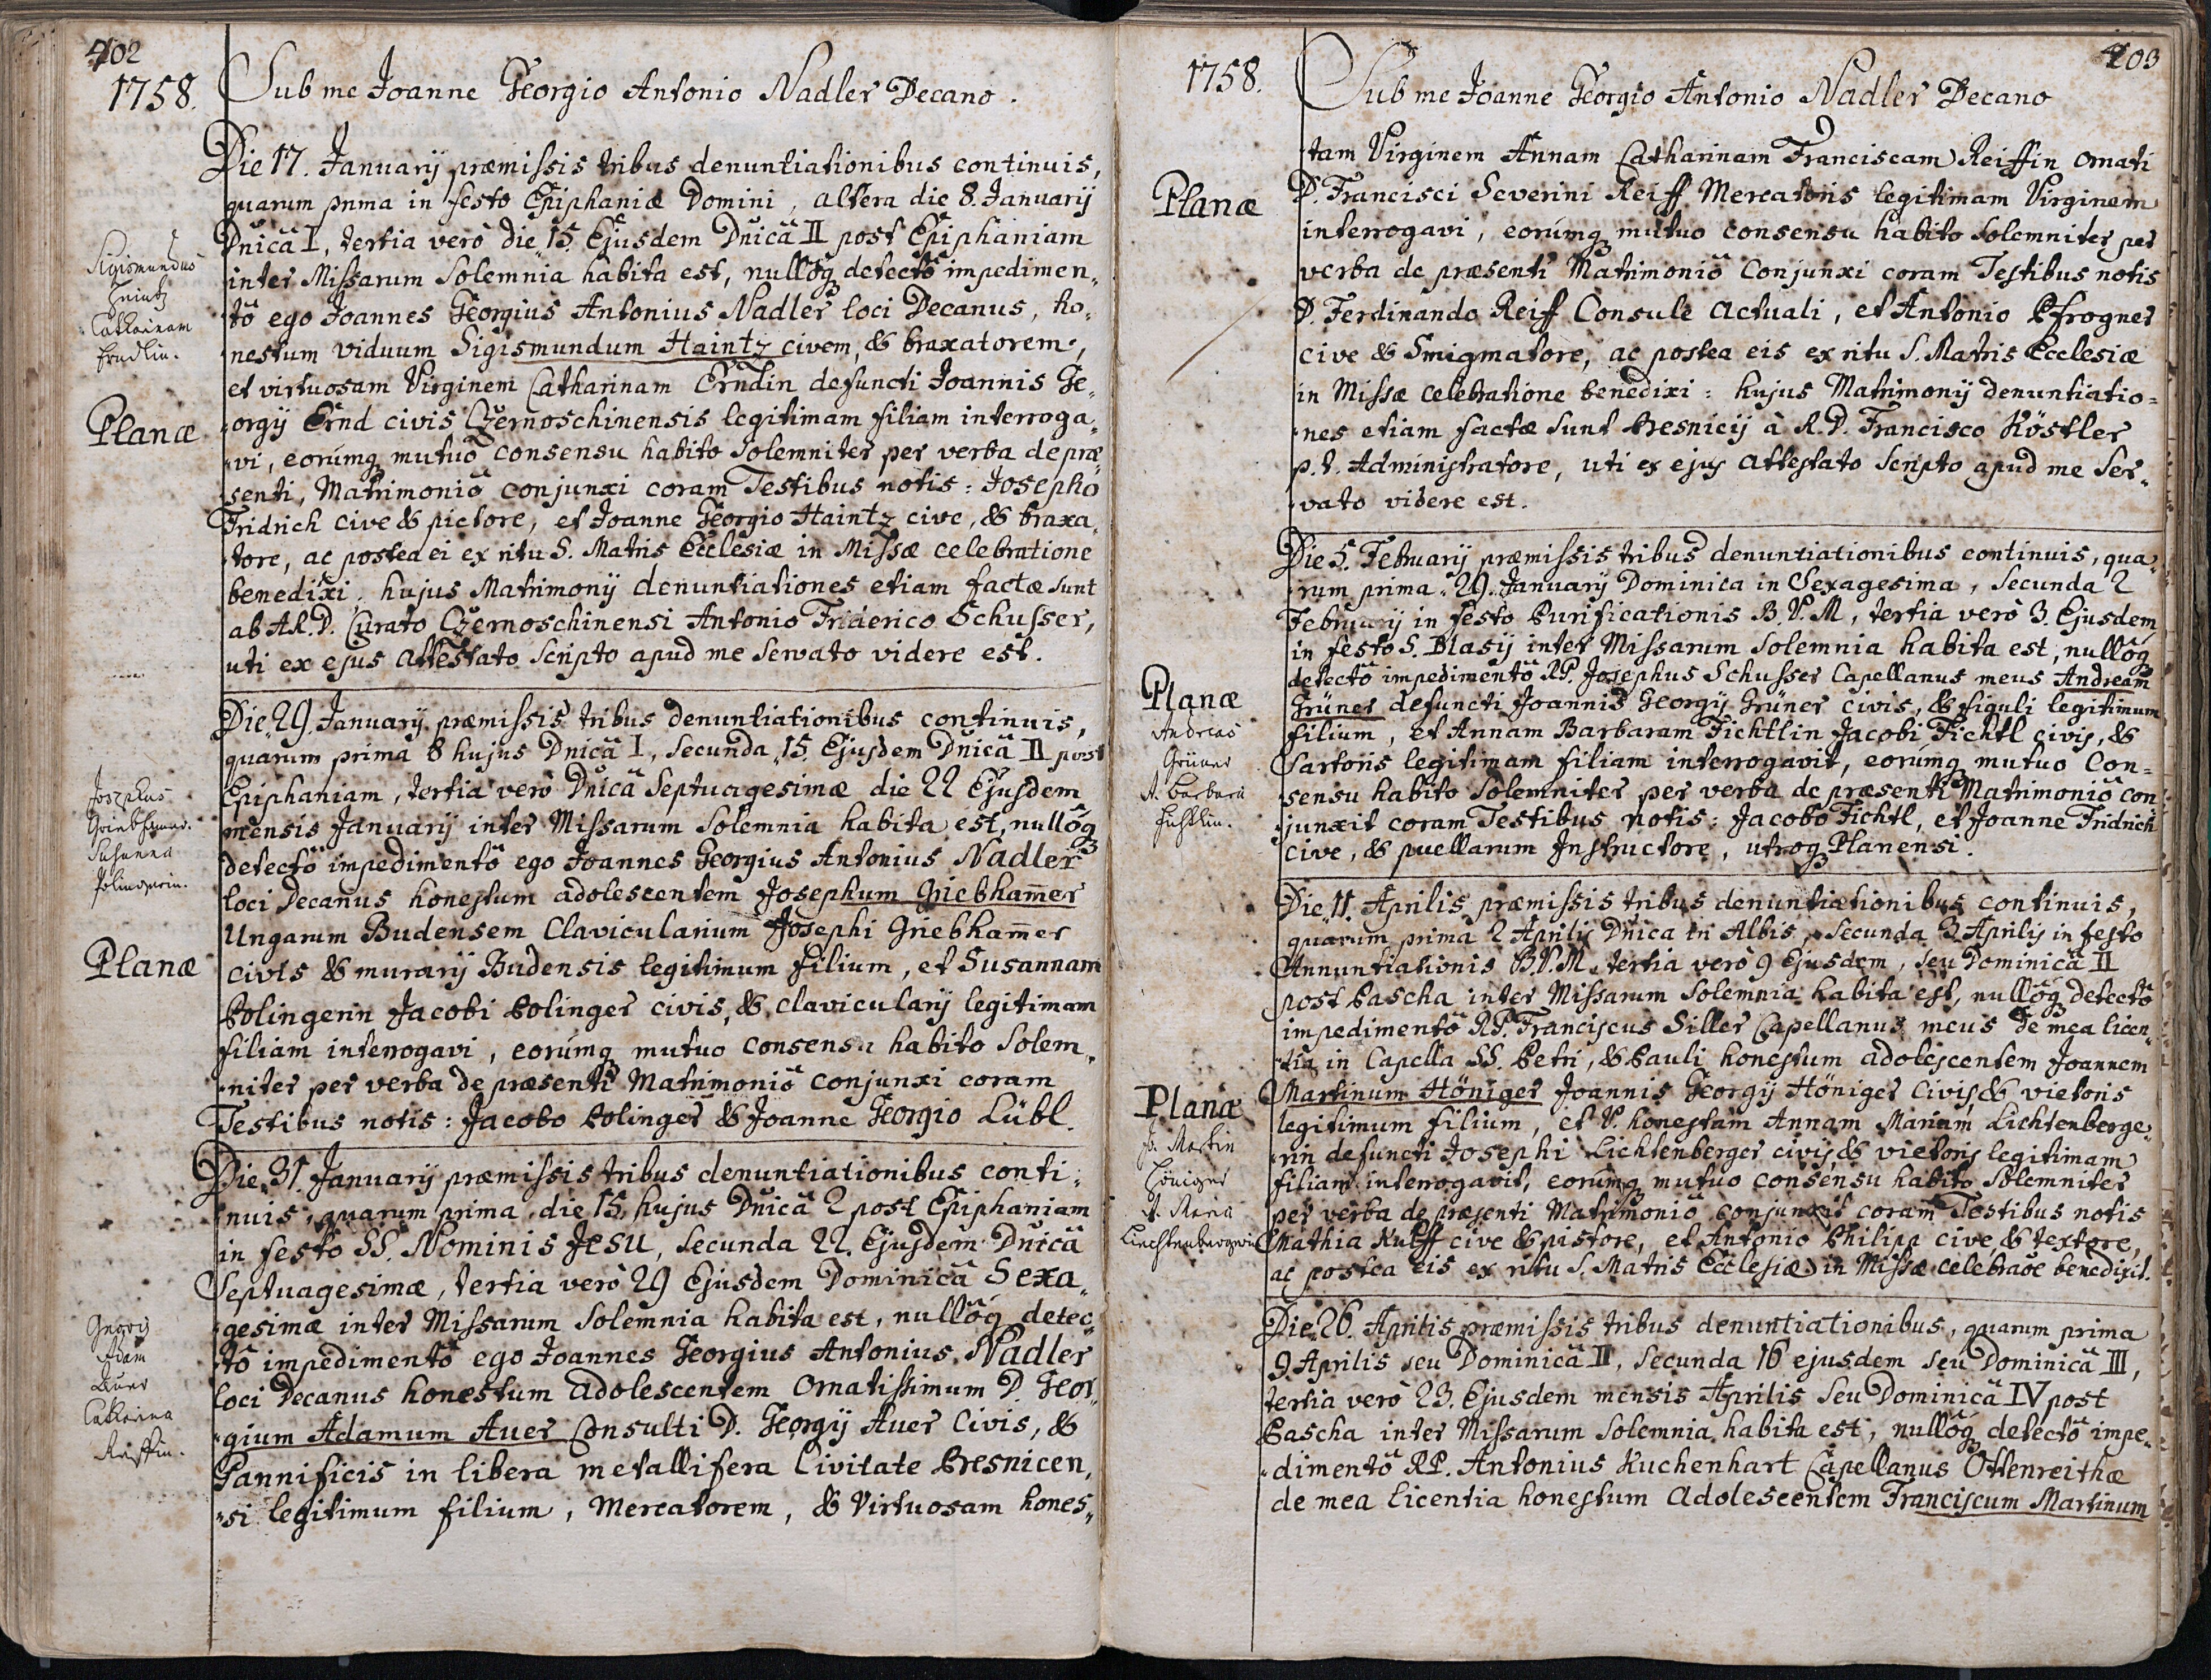 402
1758.
Sub me Joanne Georgio Antonio Nadler Decano.
Die 17. Januarij præmissis tribus denuntiationibus continuis,
quarum prima in festo Epiphaniæ Domini, altera die 8. Januarij
Dnicâ I, tertia verò die 15. Ejusdem Dnicâ II post Epiphaniam
inter Missarum Solemnia habita est, nullôq detectô impedimen„
„tô ego Joannes Georgius Antonius Nadler loci Decanus, ho„
„nestum viduum Sigismundum Haintz civem, & braxatorem,
et virtuosam Virginem Catharinam Erndin defuncti Joannis Ge„
„orgij Ernd civis Czernoschinensis legitimam filiam interroga„
„vi, eorúmq mutuô consensu habito Solemniter per verba de præ„
„senti, Matrimoniô conjunxi coram Testibus notis: Josepho
Fridrich cive & pictore, et Joanne Georgio Haintz cive, & braxa„
„tore, ac postea ei ex ritu S. Matris Ecclesiæ in Missæ celebratione
benedixi, hujus Matrimonij denuntiationes etiam factæ sunt
ab A.R.D. Curato Czernoschinensi Antonio Friderico Schusser,
uti ex ejus attestato scripto apud me servato videre est.
Sigismundus
Heintz
Catharinam
Erndlin.
Planæ
Die 29. Januarij præmissis tribus denuntiationibus continuis,
quarum prima 8 hujus Dnicâ I, secunda 15. Ejusdem Dnicâ II post
Epiphaniam, tertia verò Dnicâ Septuagesimæ die 22 Ejusdem
mensis Januarij inter Missarum Solemnia habita est, nullôq
detectô impedimentô ego Joannes Georgius Antonius Nadler
loci Decanus honestum adolescentem Josephum Griebham̄er
Ungarum Budensem Clavicularium Josephi Griebham̄er
civis & murarij Budensis legitimum filium, et Susannam
Polingerin Jacobi Polinger civis, & clavicularij legitimam
filiam interrogavi, eorúmq mutuo consensu habito Solem„
„niter per verba de præsenti Matrimoniô conjunxi coram
Testibus notis: Jacobo Polinger & Joanne Georgio Lübl.
Josephus
Griebhamer.
Susanna
Polingerin.
Planæ
Die 31. Januarij præmissis tribus denuntiationibus conti„
„nuis, quarum prima, die 15. hujus Dnicâ 2 post Epiphaniam
in festo SS. Nominis JESU, secunda 22. Ejusdem Dnicâ
Septuagesimæ, tertia verò 29 Ejusdem Dominicâ Sexa„
„gesimæ inter Missarum Solemnia habita est, nullôq detec„
„tô impedimentô ego Joannes Georgius Antonius Nadler
loci Decanus honestum adolescentem Ornatissimum D. Geor„
„gium Adamum Auer Consulti D. Georgij Auer Civis, &
Pannificis in libera metallifera Civitate Presnicen„
„si legitimum filium, Mercatorem, & Virtuosam hones„
Georg
Adam
Auer
Catharina
Reiffin.
403
1758.
Sub me Joanne Georgio Antonio Nadler Decano
„tam Virginem Annam Catharinam Franciscam Reiffin Ornati
D. Francisci Severini Reiff Mercatoris legitimam Virginem
interrogavi, eorúmq mutuo consensu habito Solemniter per
verba de præsenti Matrimoniô conjunxi coram Testibus notis
D. Ferdinando Reiff Consule actuali, et Antonio Pfrogner
cive & Smigmatore, ac postea eis ex ritu S. Matris Ecclesiæ
in Missæ celebratione benedixi: hujus Matrimonij denuntiatio=
„nes etiam factæ sunt Presnicij à R.D. Francisco Köstler
p.t. Administratore, uti ex ejus attestato scripto apud me ser„
„vato videre est.
Planæ
Die 5. Februarij præmissis tribus denuntiationibus continuis, qua„
„rum prima 29. Januarij Dominica in Sexagesima, secunda 2
Februarij in festo Purificationis B.V.M, tertia verò 3. Ejusdem
in festo S. Blasij inter Missarum Solemnia habita est, nullôq
detectô impedimentô RP. Josephus Schusser Capellanus meus Andream
Grüner defuncti Joannis Georgij Grüner civis, & figuli legitimum
filium, et Annam Barbaram Fichtlin Jacobi Fichtl civis, &
Sartoris legitimam filiam interrogavit, eorúmq mutuo con=
„sensu habito Solemniter per verba de præsenti Matrimoniô con
„junxit coram Testibus notis: Jacobo Fichtl, et Joanne Fridrich
cive, & puellarum Instructore, utroq Planensi.
Planæ
Andreas
Grüner
A. Barbara
Fichtlin.
Die 11. Aprilis præmissis tribus denuntiationibus continuis,
quarum prima 2 Aprilis Dnica in Albis, secunda 3 Aprilis in festo
Annuntiationis B.V.M, tertia verò 9 Ejusdem, seu Dominicâ II
post Pascha inter Missarum Solemnia habita est, nullôq detectô
impedimentô RP. Franciscus Siller Capellanus meus de mea licen„
„tia in Capella SS. Petri, & Pauli honestum adolescentem Joannem
Martinum Höniger Joannis Georgij Höniger Civis & vietoris
legitimum filium, et V. honestam Annam Mariam Lichtenberge„
„rin defuncti Josephi Lichtenberger civis & vietoris legitimam
filiam interrogavit, eorúmq mutuo consensu habito Solemniter
per verba de præsenti Matrimoniô conjunxit coram Testibus notis
Mathia Kuff cive & pistore, et Antonio Philipp cive & textore,
ac postea eis ex ritu S. Matris Ecclesiæ in Missæ celebraõe benedixit.
Planæ
Jo. Martin
Höniger
A. Maria
Liechtenbergerin
Die 26. Aprilis præmissis tribus denuntiationibus, quarum prima
9 Aprilis seu Dominicâ II, secunda 16 ejusdem seu Dominicâ III,
tertia verò 23. Ejusdem mensis Aprilis seu Dominicâ IV post
Pascha inter Missarum Solemnia habita est, nullôq detectô impe„
„dimentô RP. Antonius Kuchenhart Capellanus Ottenreithæ
de mea licentia honestum adolescentem Franciscum Martinum